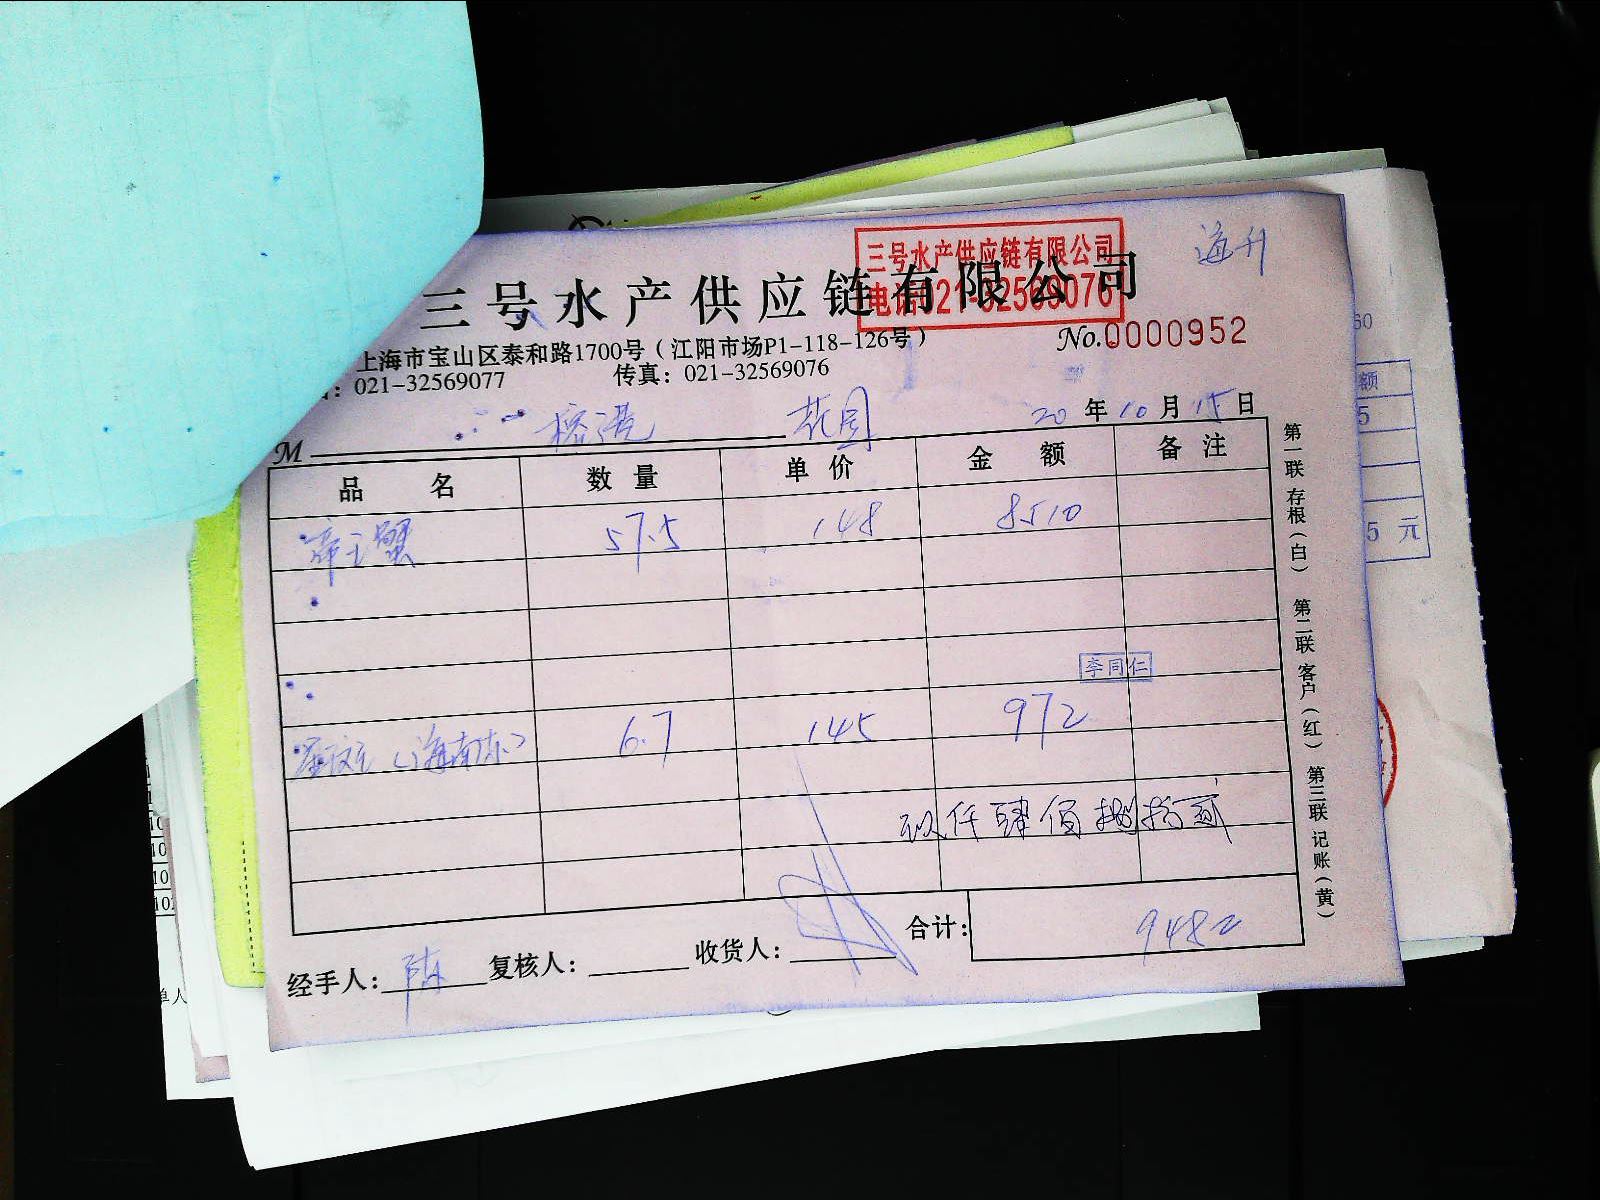 三号水产供应链有限公司
电话021-32569076
海升
三号水产供应链有限公司
上海市宝山区泰和路1700号（江阳市场P1-118-126号）
No.0000952
：021-32569077 传真：021-32569076
M 榕港 花园 20年10月15日
品名 数量 单价 金额 备注
帝王蟹 57.5 148 8510
李同仁
(海南东) 6.7 145 972
玖仟肆佰捌拾贰
合计：9482
经手人：陈 复核人： 收货人：
第一联存根（白） 第二联客户（红） 第三联记账（黄）
60
额
5
5元
单人